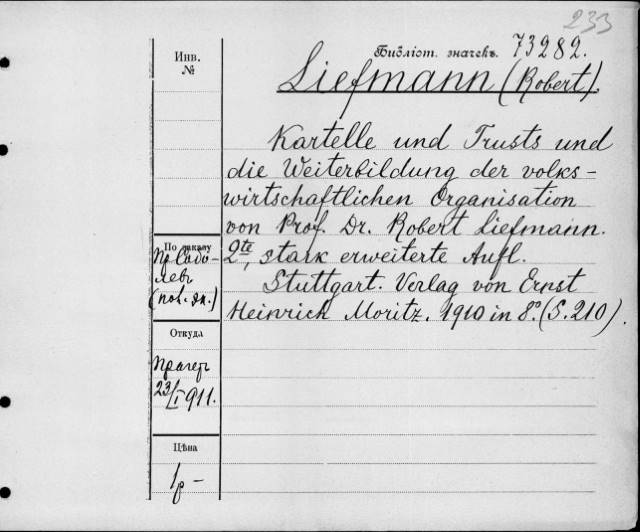 233
Инв.
№
Библіот. значекъ. 73282.
Liefmann (Robert).
Kartelle und Trusts und
die Weiterbildung der volks-
wirtschaftlichen Organisation
von Prof. Dr. Robert Liefmann.
2te, stark erweiterte Aufl.
Stuttgart. Verlag von Ernst
Heinrich Moritz. 1910 in 8º. (S. 210).
По заказу
Откуда
23/I 911.
Цѣна
1р -